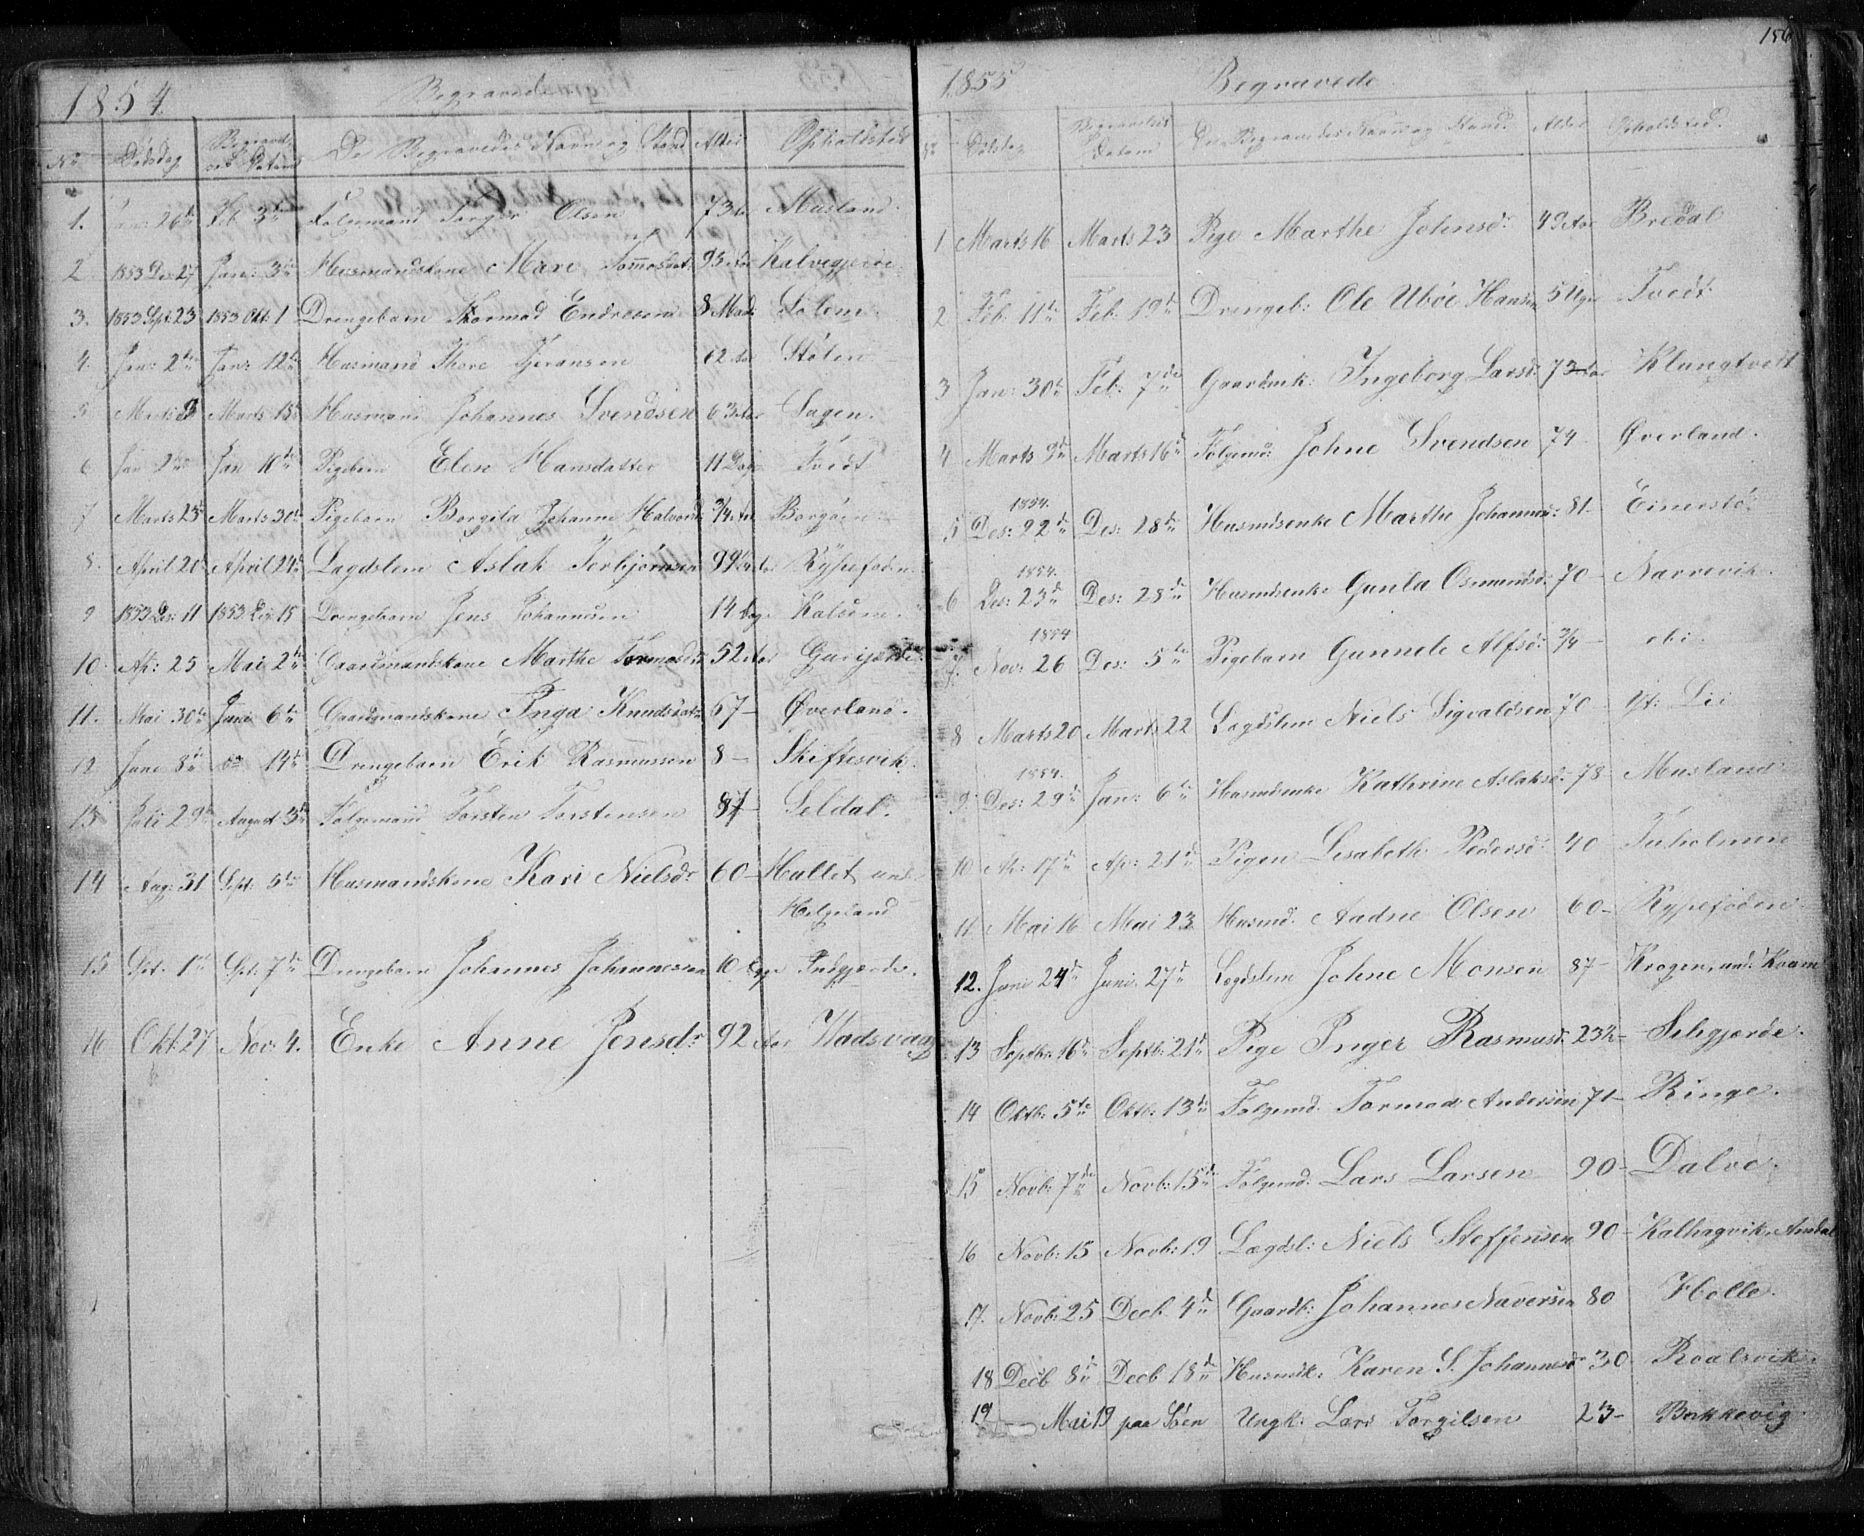 1854.
Begravede
No Dødsdag Begravelsesdatum De Begravedes Navn og Stand Alder Opholdsted
1. Jan: 26de Feb. 3de Følgemand Torger Olsen 73 Aar Musland.
2 1853 Des 27 Jan: 3de Husmandskone Mari 93 Aar Kalvegjerde
3. 1853 Spt: 23 1853 Okt. 1 Drengebarn Thormod Endresen 8 Mad: Solem.
4. Jan: 2de Jan: 12te Husmand Thore Gjeransen 62 Aar Stølen
5 Marts Marts 15de Husmand Johannes Svendsen 63 Aar Sagen.
6 Jan 2de Jan 10de Pigebarn Elen Hansdatter 11 Dage Tvedt
7 Marts 25 Marts 30te Pigebarn Borgila Johanne Halvorsd: 3/4 Aar Borgøen
8. April 20 April 24de Lagdslem Aslak Torbjørnsen Rypefoden.
9 1853 Des: 11 1853 Des: 15 Drengebarn Jens Johannesen 14 Dage
10. Ap: 25 Mai 2de Gaardmandskone Marthe Tormodsdr 52 Aar
11. Mai 30te Juni 6te Gaardmandskone Inga Knudsdatr 67 — Øverland.
12 Juni 8de do 14de Drengebarn Erik Rasmussen 8 — Skiftesvik.
13 Juli 29de August 3de Følgemand Torsten Torstensen 87 — Seldal.
14 Aug: 31 Sept: 5te Husmandskone Kari Nielsdr 60 — Hallet und
Helgeland
15 Spt. 1ste Spt: 7de Drengebarn Johannes Johannessen 10 Dage Indgjerde.
16 Okt. 27 Nov: 4. Enke Anne Jensdr 92 Aar Vadsvaag
156
1855 Begravede
No Dødsdag Begravelses Datum De Begravedes Navn og Stand. Alder Opholdsted.
1 Marts 16 Marts 23 Pige Marthe Johnsdr 49 Aar Bredal
2 Feb. 11te Feb. 19de Drengeb: Ole Ubøe Hansen 5 Uger Tvedt
3 Jan: 30te Feb: 7de Gaardmk: Ingeborg Larsd: 73 Aar Klungtvett
4 Marts 9de Marts 16de Følgemd: Johne Svendsen 74 Øverland.
1854.
5 Des: 22de Des: 28de Husmdsenke Marthe Johannesd: 81
1854.
6 Des: 23de Des: 28de Husmdsenke Gunla Osmundsd: 70 — Narrevik.
1854
7. Nov: 26 Des: 5te Pigebarn Gunnele Alfsd: 3/4 — ibi.
8 Marts 20 Marts 22 Lægdslem Niels Sigvaldsen 70 — Yt: Lii
1854.
9. Des: 29de Jan: 6te Husmdenke Kathrine Aslaksd: 78 — Musland
10 Ap: 17de Ap: 21de Pigen Lisabeth Pedersd: 40 Tuholmen
11 Mai 16 Mai 23 Husmd. Aadne Olsen 60 — Rypefoden
12. Juni 24de Juni 27de Lægdslem Johne Monsen 87 — Krogen, und: Kvam
13 Septb: 16de Septb: 21de Pige Inger Rasmusd: 23½ — Selsgjærde.
14 Oktb: 5te Oktb: 13de Følgemd. Tormod Andersen 71 — Ringe.
15 Novb: 7de Novb: 15de Følgemd. Lars Larsen 90 — Dalve.
16 Novb: 15 Novb: 19 Lægdsl: Niels Steffensen 90 — Kalhagvik, Amdal
17. Novb: 25 Decb. 4de Gaardb: Johannes Naversen 80 Helle.
18 Decb 8de Decb 18de Husmdk: Karen S. Johannesdr 30 Roalsvik.
19 — Mai 19 paa Søen Ungk: Lars Torgilsen 23 — Bakkevig.